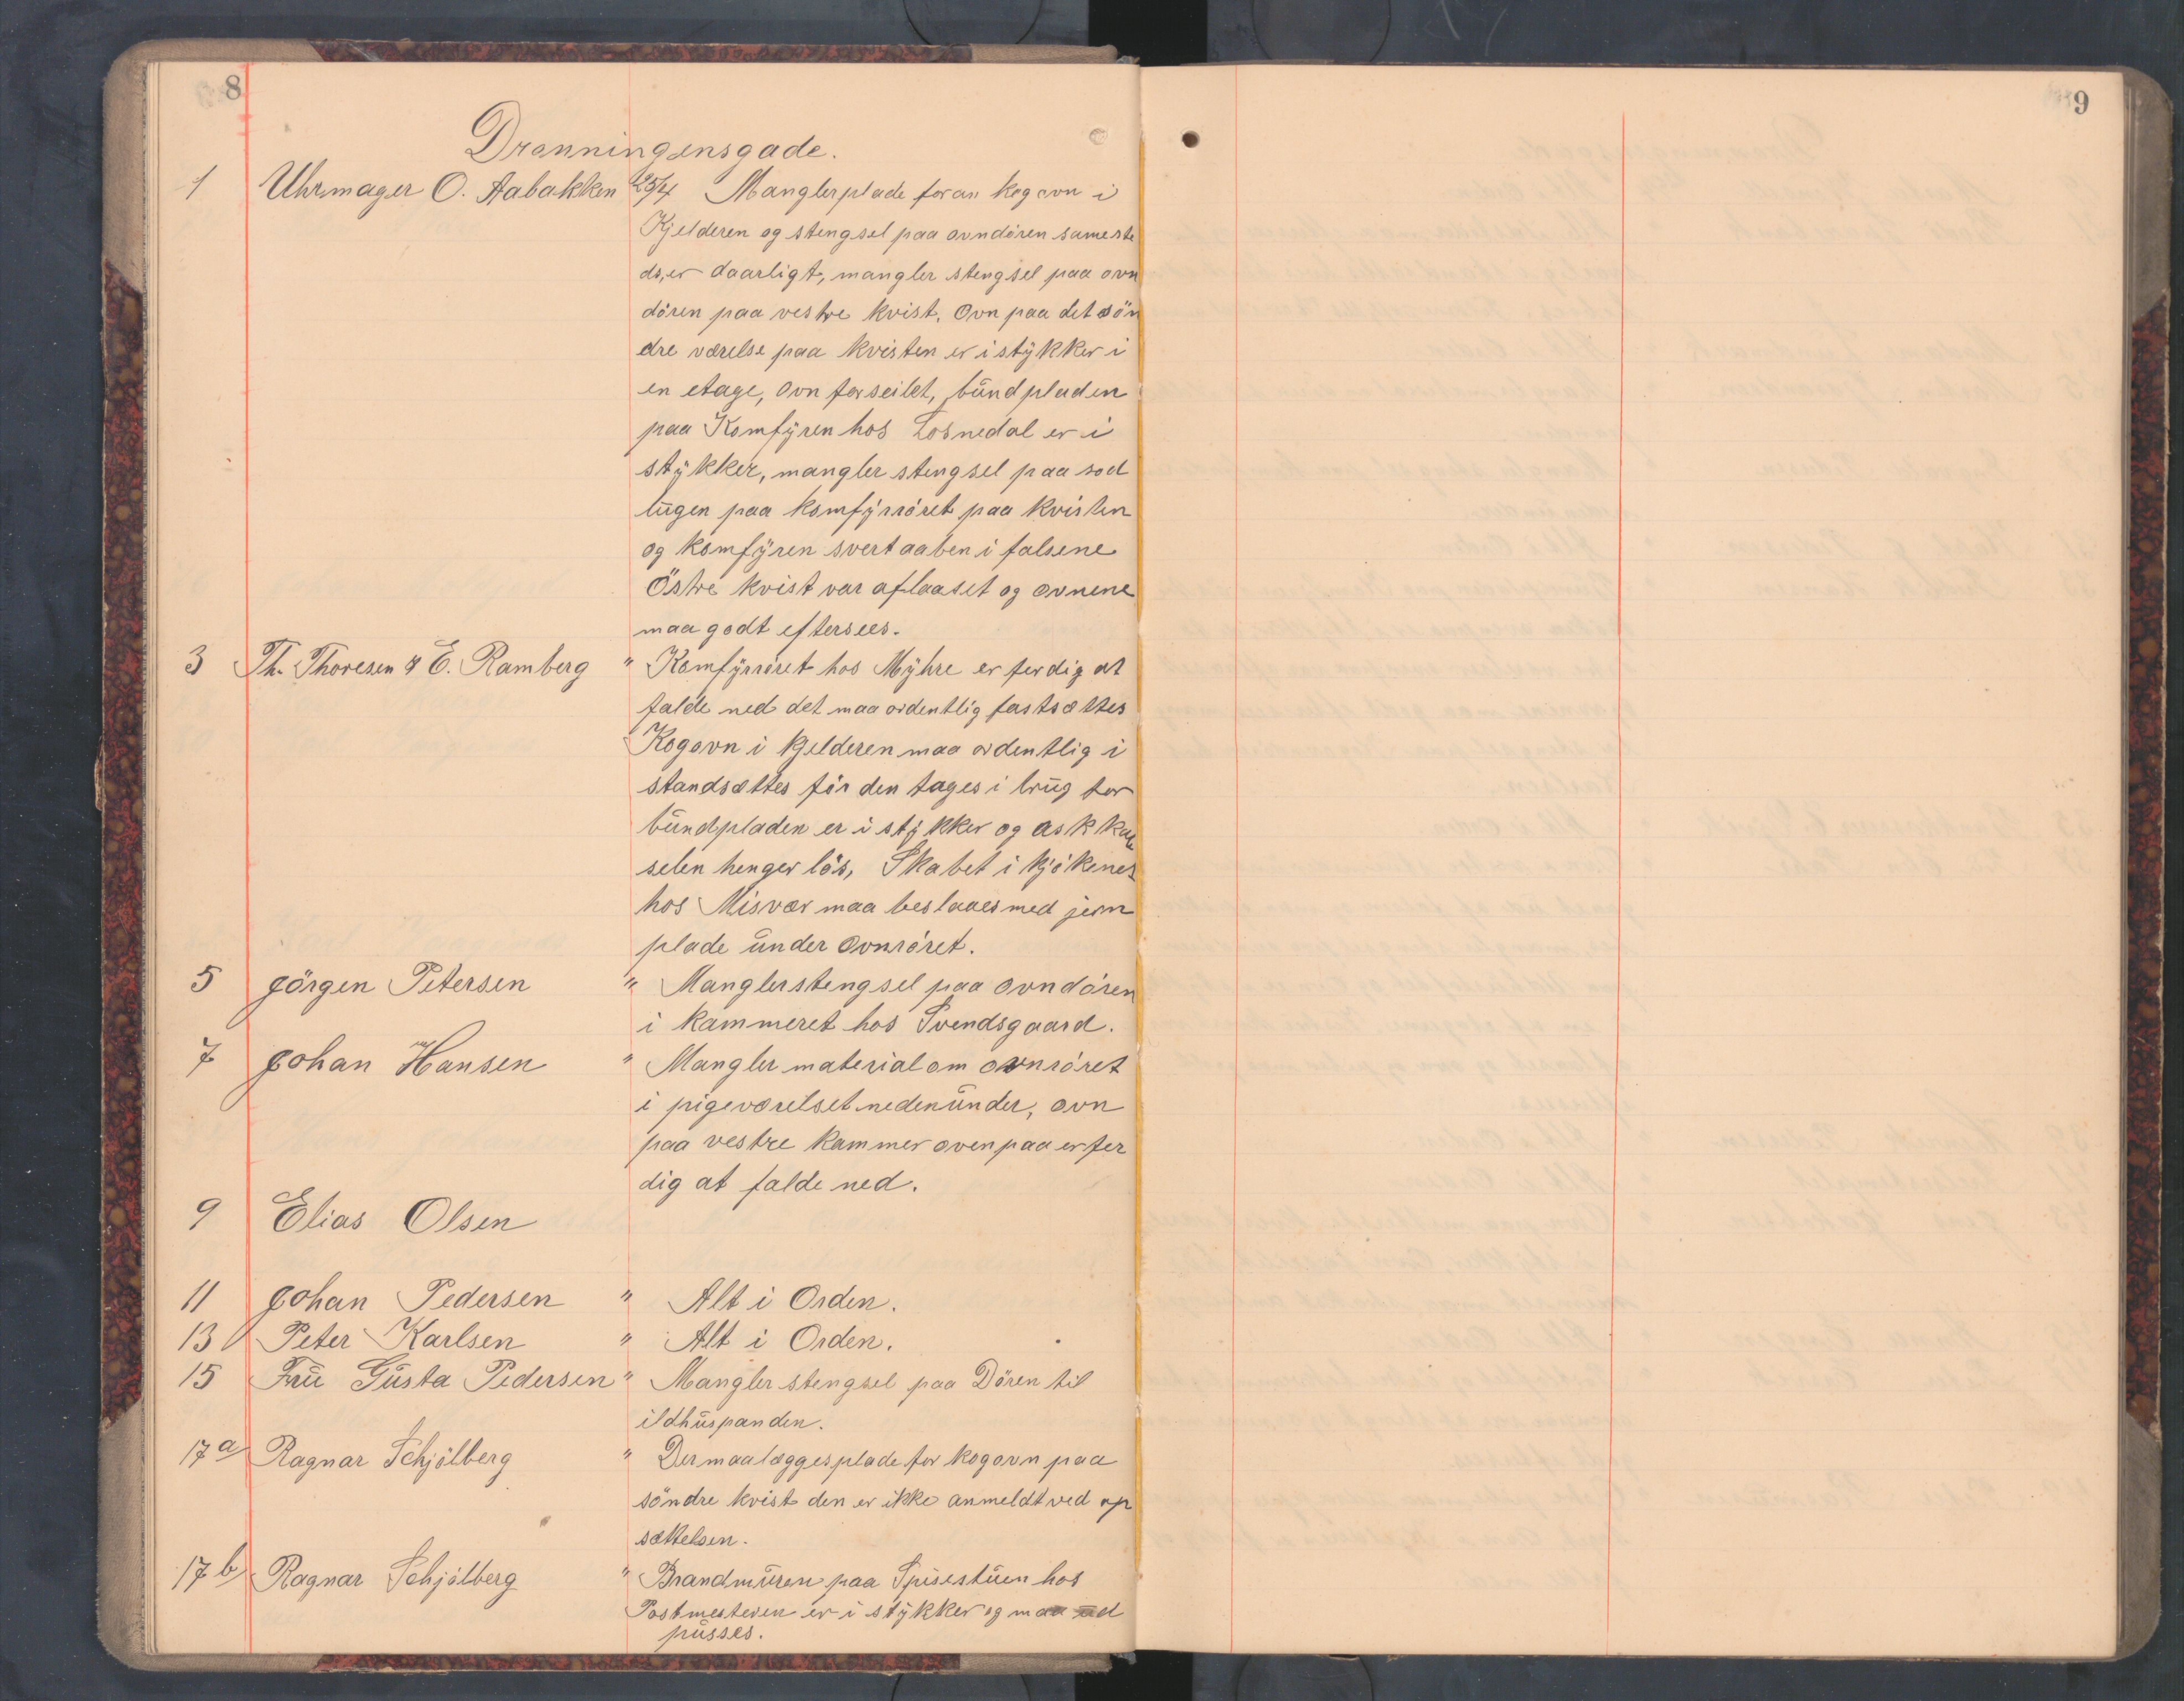 8
9
Dronningensgade.
1 Uhrmager O. Aabakken 25/4 Mangler plade foran kogovn i
Kjelderen og stengsel paa ovndören sameste
ds, er daarligt, mangler stengsel paa ovn
dören paa vestre kvist. Ovn paa det sön
dre værelse paa kvisten er i stykker i
en etage, ovn forseilet, bundpladen
paa Komfyren hos Losnedal er i
stykker, mangler stengsel paa sod
lugen paa komfyrröret paa kvisten
og komfyren svert aaben i falsene
Östre kvist var aflaaset og ovnene
maa godt eftersees.
3 Th. Thoresen & E. Ramberg " Komfyrröret hos Myhre er ferdig at
falde ned det maa ordentlig fastsættes
Kogovn i kjelderen maa ordentlig i
standsættes för den tages i brug for
bundpladen er i stykker og askkas
selen henger lös, Skabet i kjökenet
hos Misvær maa beslaaes med jern
plade under ovnröret.
5 Jörgen Petersen " Mangler stengsel paa ovndören
i kammeret hos Svendsgaard.
7 Johan Hansen " Mangler material om ovnröret
i pigeværelset nedenunder, ovn
paa vestre kammer ovenpaa er fer
dig at falde ned.
9 Elias Olsen
11 Johan Pedersen " Alt i Orden.
13 Peter Karlsen " Alt i Orden.
15 Fru Gusta Pedersen " Mangler stengsel paa Dören til
ildhuspanden.
17a Ragnar Schjölberg " Der maa lægges plade for kogovn paa
söndre kvist den er ikke anmeldt ved op
sættelsen.
17b Ragnar Schjölberg " Brandmuren paa Spisestuen hos
Postmesteren er i stykker og maa ud
pusses.